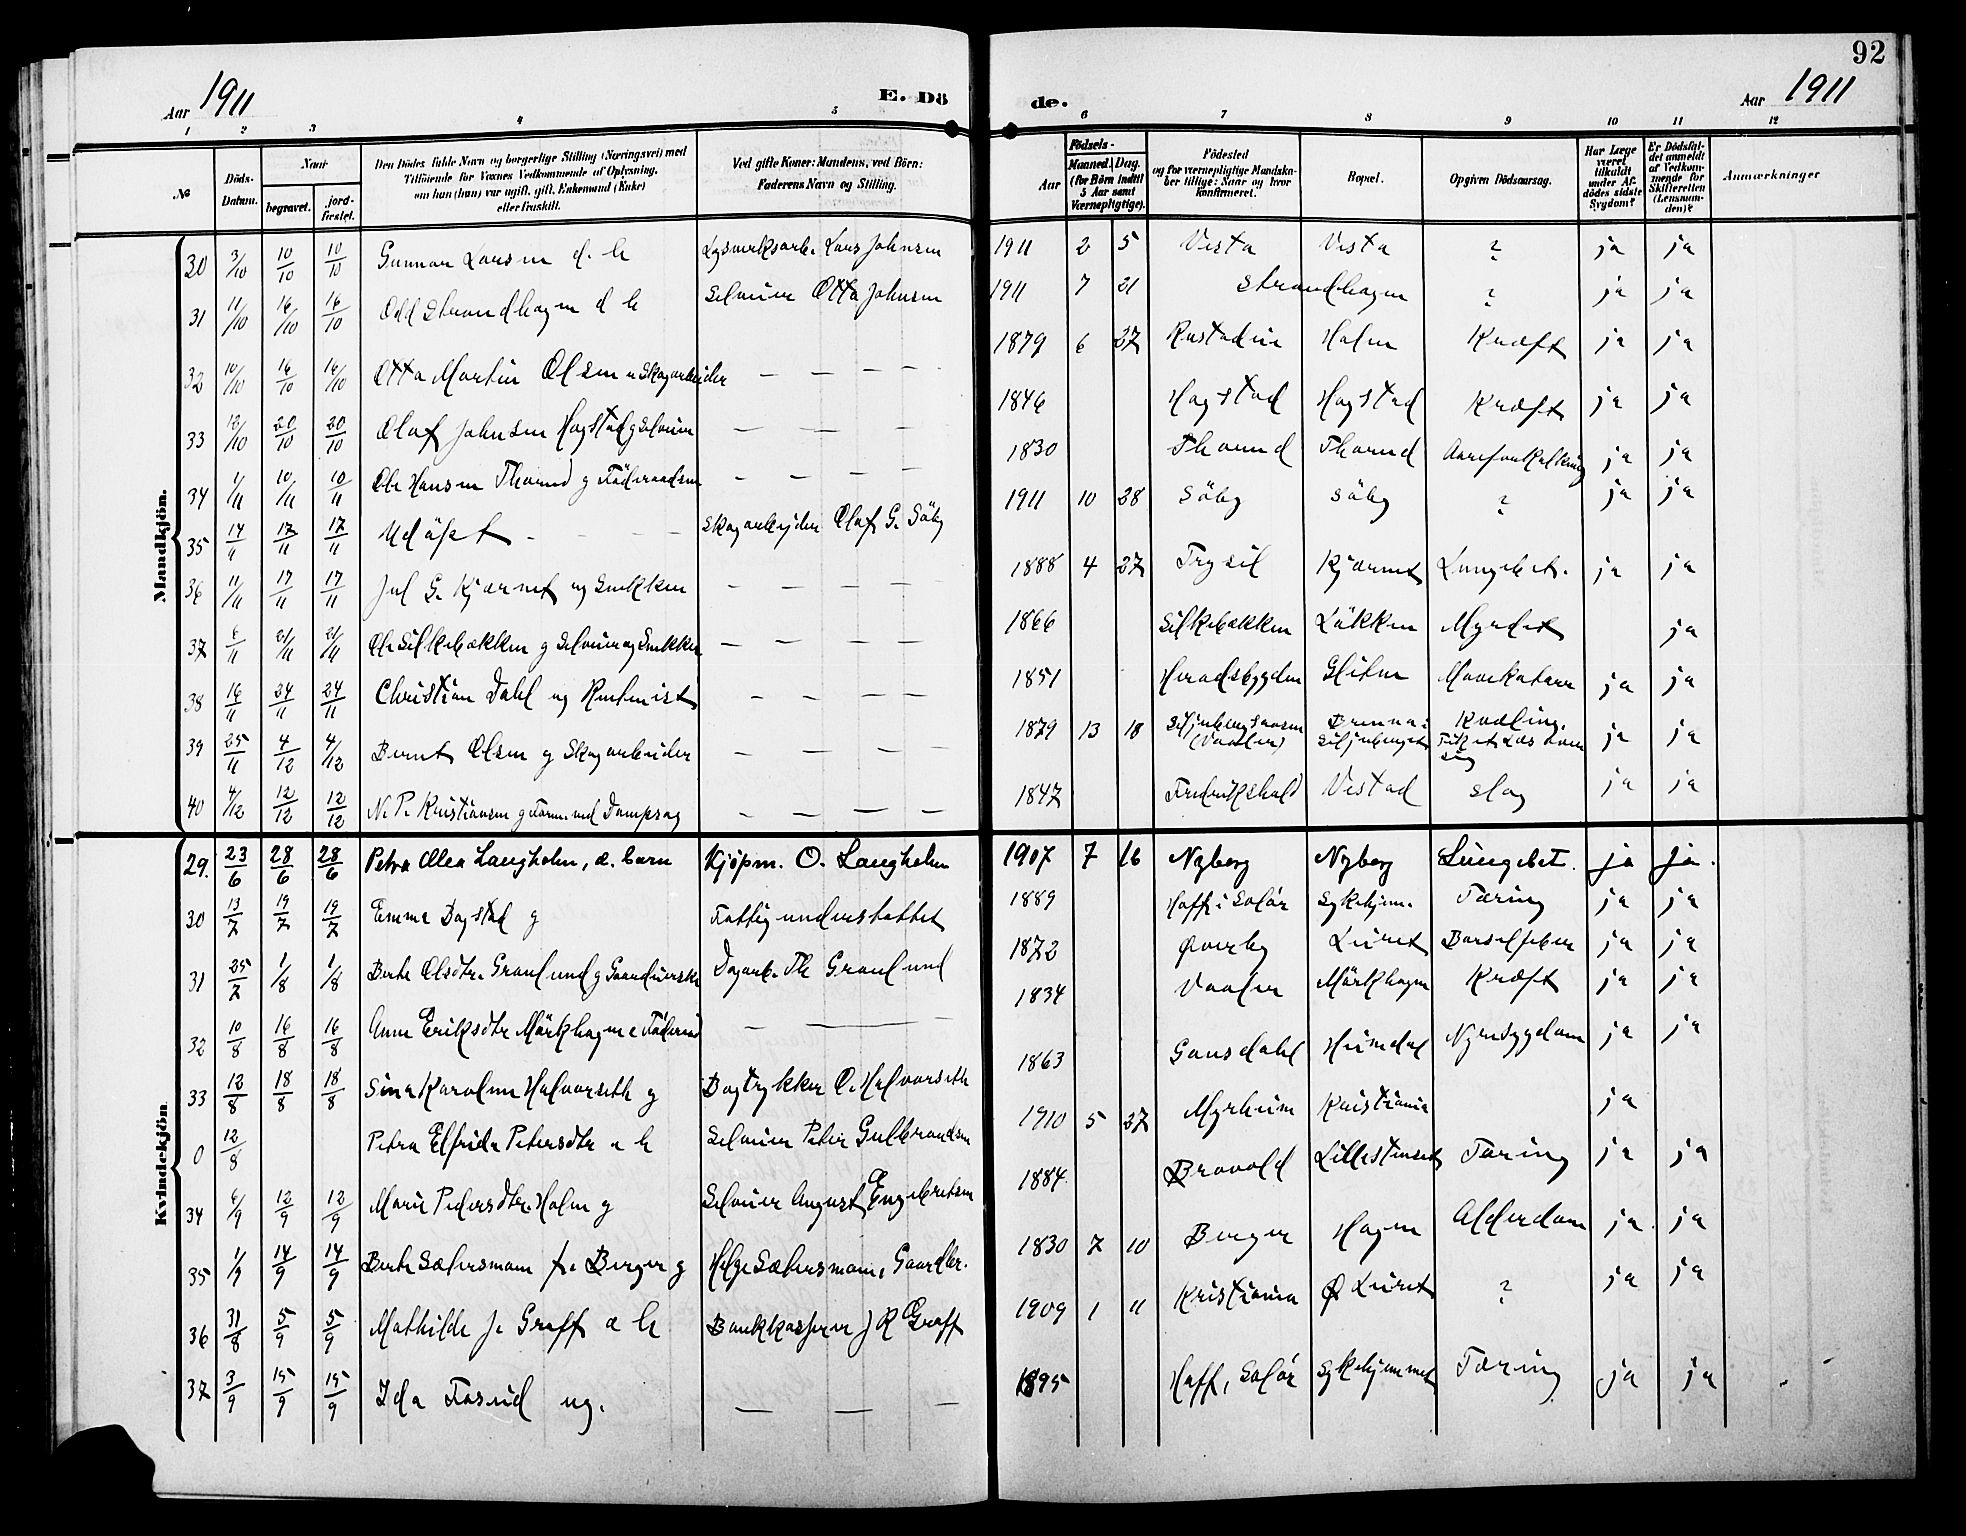 92
Aar 1911 E. Dö de. Aar 1911
1 2 3 4 5 6 7 8 9 10 11 12
№ Döds-Datum. Naar begravet. jord-fæstet. Den Dödes fulde Navn og borgerlige Stilling (Næringsvei) med Tilföiende for Voxnes Vedkommende af Oplysning, om han (hun) var ugift, gift, Enkemand (Enke) eller fraskilt. Ved gifte Koner: Mandens, ved Börn: Faderens Navn og Stilling. Födsels- Aar Maaned. Dag. (for Börn indtil 5 Aar samt Værnepligtige). Födested og for værnepligtige Mandskaber tillige: Naar og hvor konfirmeret. Bopæl. Opgiven Dödsaarsag. Har Læge været tilkaldt under Afdödes sidste Sygdom? Er Dödsfaldet anmeldt af Vedkommende for Skifteretten (Lensmanden)? Anmærkninger
Mandkjön.
30 3/10 10/10 10/10 Gunnar Larsen d. b Lars Johnsen 1911 2 5 Vesta Vesta ? ja ja
31 11/10 16/10 16/10 Odd Strandhagen d b Selveier Otto Johnsen 1911 7 21 Strandhagen ? ja ja
32 10/10 16/10 16/10 Otto Martin Olsen Skogarbeider — — — — 1879 6 27 Holm Kræft ja ja
33 12/10 20/10 20/10 Olaf Johnsen Hagstad g Selveier — — — 1846 Hagstad Hagstad Kræft ja ja
34 1/11 10/11 10/11 Ole Hansen g Föderaadsm — — — — 1830 Aareforkalkning ja ja
35 14/11 17/11 17/11 Udöpt - - - - Skogarbejder Olaf G. Söby 1911 10 28 Söby Söby ? ja ja
36 11/11 17/11 17/11 G. Kjærnet ug Snekker — — — — 1888 4 27 Trysil Kjærnet Lungebet. ja ja
37 6/11 21/11 21/11 Ole Silkebækken g Selveier og Snekker — — — — 1866 Silkebækken Løkken Myrdet ja
38 16/11 24/11 24/11 Christian Dahl ug — — — — 1851 Heradsbygden Glitre Mavekatarr ja ja
39 25/11 4/12 4/12 Bernt Olsen g Skogarbeider — — — — 1879 13 18 (Vaaler) ja ja
40 4/12 12/12 12/12 N. P. Kristiansen g Dampsag — — — — 1847 Fredrikshald Vestad slag ja ja
Kvindekjön
29. 23/6 28/6 28/6 Petra Olea Langholm, æ. barn Kjøpm. O. Langholm 1907 7 16 Nyberg Nyberg Lungebet. ja ja.
30 13/7 19/7 19/7 Emma Dagstad g Fattigunderstøttet 1889 Hoff i Solør Sykehjem. Tæring ja ja
31 25/7 1/8 1/8 Berte Olsdtr. Graulund g Dagarb. Th Graulund 1872 Øverby Barselfeber ja ja
32 10/8 16/8 16/8 Anne Eriksdtr Mörkhagen e — — 1834 Vaaler Mörkhagen Kræft ja ja
33 12/8 18/8 18/8 Sina Karoline Halvorseth g Bogtrykker O. Halvorseth 1863 Heimdal Nyresygdom ja ja
0 12/8 Petra Elfrida Petersdtr æ b Selveier Peter Gulbrandsen 1910 5 27 Myrheim Kristiania ja
34 6/9 12/9 12/9 Marie Pedersdtr. Holm g Selveier August Engebretsen 1884 Bravold Tæring ja ja
35 1/9 14/9 14/9 Berte Sætersmoen f. Berger g Helge Sætersmoen, Gaardbr. 1830 7 10 Berger Hagen Alderdom ja ja
36 31/8 5/9 5/9 Mathilde J. Graff æ b Bankkasserer J R Graff 1909 1 11 Kristiania ? ja ja
37 3/9 15/9 15/9 Ida Fosud ug. — — — 1895 Hoff, Solör Sykehjemmet Tæring ja ja